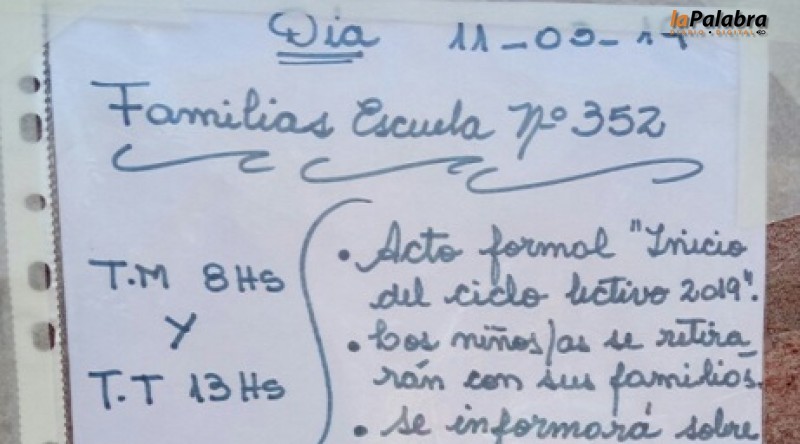 laPalabra
DIARIO DIGITAL
Día 11-03-19
Familias Escuela Nº 352
T.M 8Hs
y
T.T 13Hs
• Acto formal "Inicio
del ciclo lectivo 2019".
• Los niños/as se retira
rán con sus familias.
• Se informará sobre